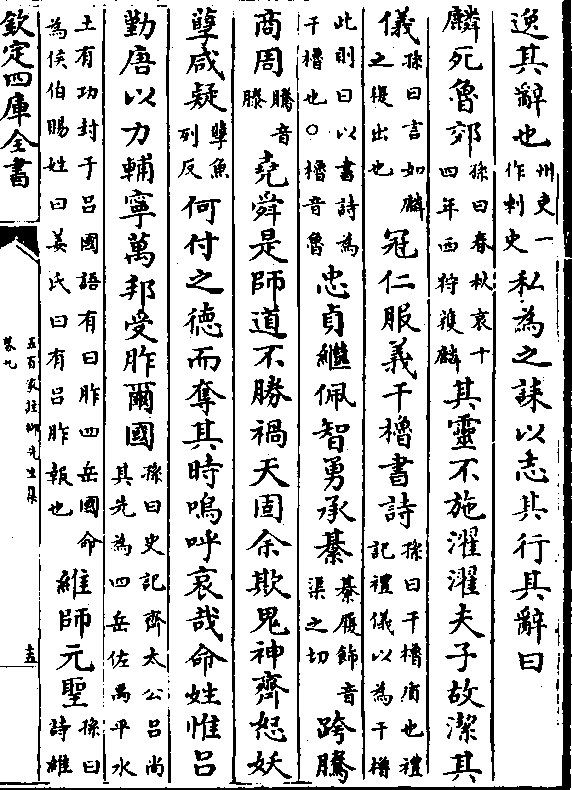 逸其辭也州吏一作刺史私為之誄以志其行其辭曰
麟死魯郊孫曰春秋哀十四年西狩獲麟其靈不施濯濯夫子故潔其
儀孫曰言如麟之復出也冠仁服義干櫓書詩孫曰干櫓盾也禮記禮儀以為干櫓
此則曰以書詩為干櫓也○櫓音魯忠貞繼佩智勇承綦綦履飾音渠之切跨騰
商周騰音滕堯舜是師道不勝禍天固余欺鬼神齊怒妖
孽咸疑孽魚列反何付之德而奪其時嗚呼哀哉命姓惟呂
勤唐以力輔寧萬邦受胙爾國孫曰史記齊太公呂尚其先為四岳佐禹平水
土有功封于呂國語有曰胙四岳國命為侯伯賜姓曰姜氏曰有呂胙報也維師元聖孫曰詩維
欽定四庫全書
五百家註柳先生集
卷九
十五